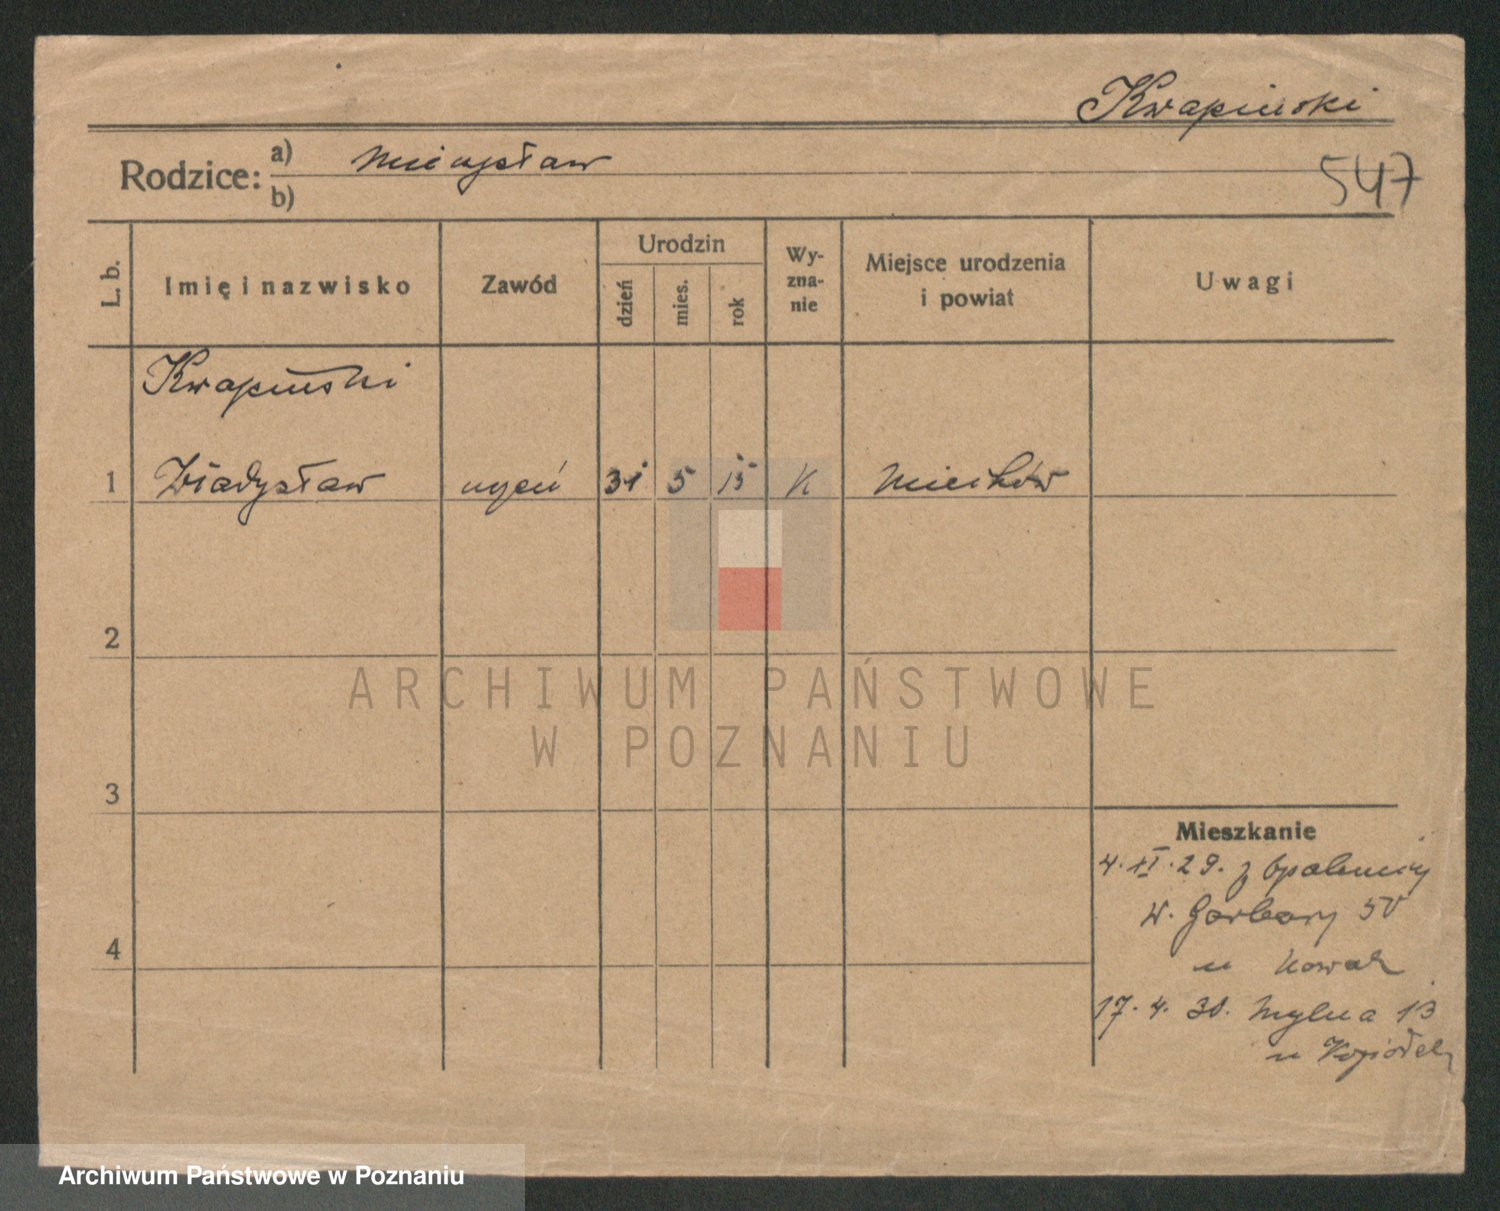 Kwapiński
Rodzice: a) Mieczysław
b)
547
L. b.
Imię i nazwisko
Zawód
Urodzin
dzień
mies.
rok
Wy-
zna-
nie
Miejsce urodzenia
i powiat
Uwagi
Kwapiński
1 Władysław uczeń 31 5 15 K Miechów
2
ARCHIWUM PAŃSTWOWE
W POZNANIU
3
Mieszkanie
4. XI. 29. z Opalenicy
W. Garbary 50
u Nowak
4
17. 4. 30. Mylna 13
u
Archiwum Państwowe w Poznaniu